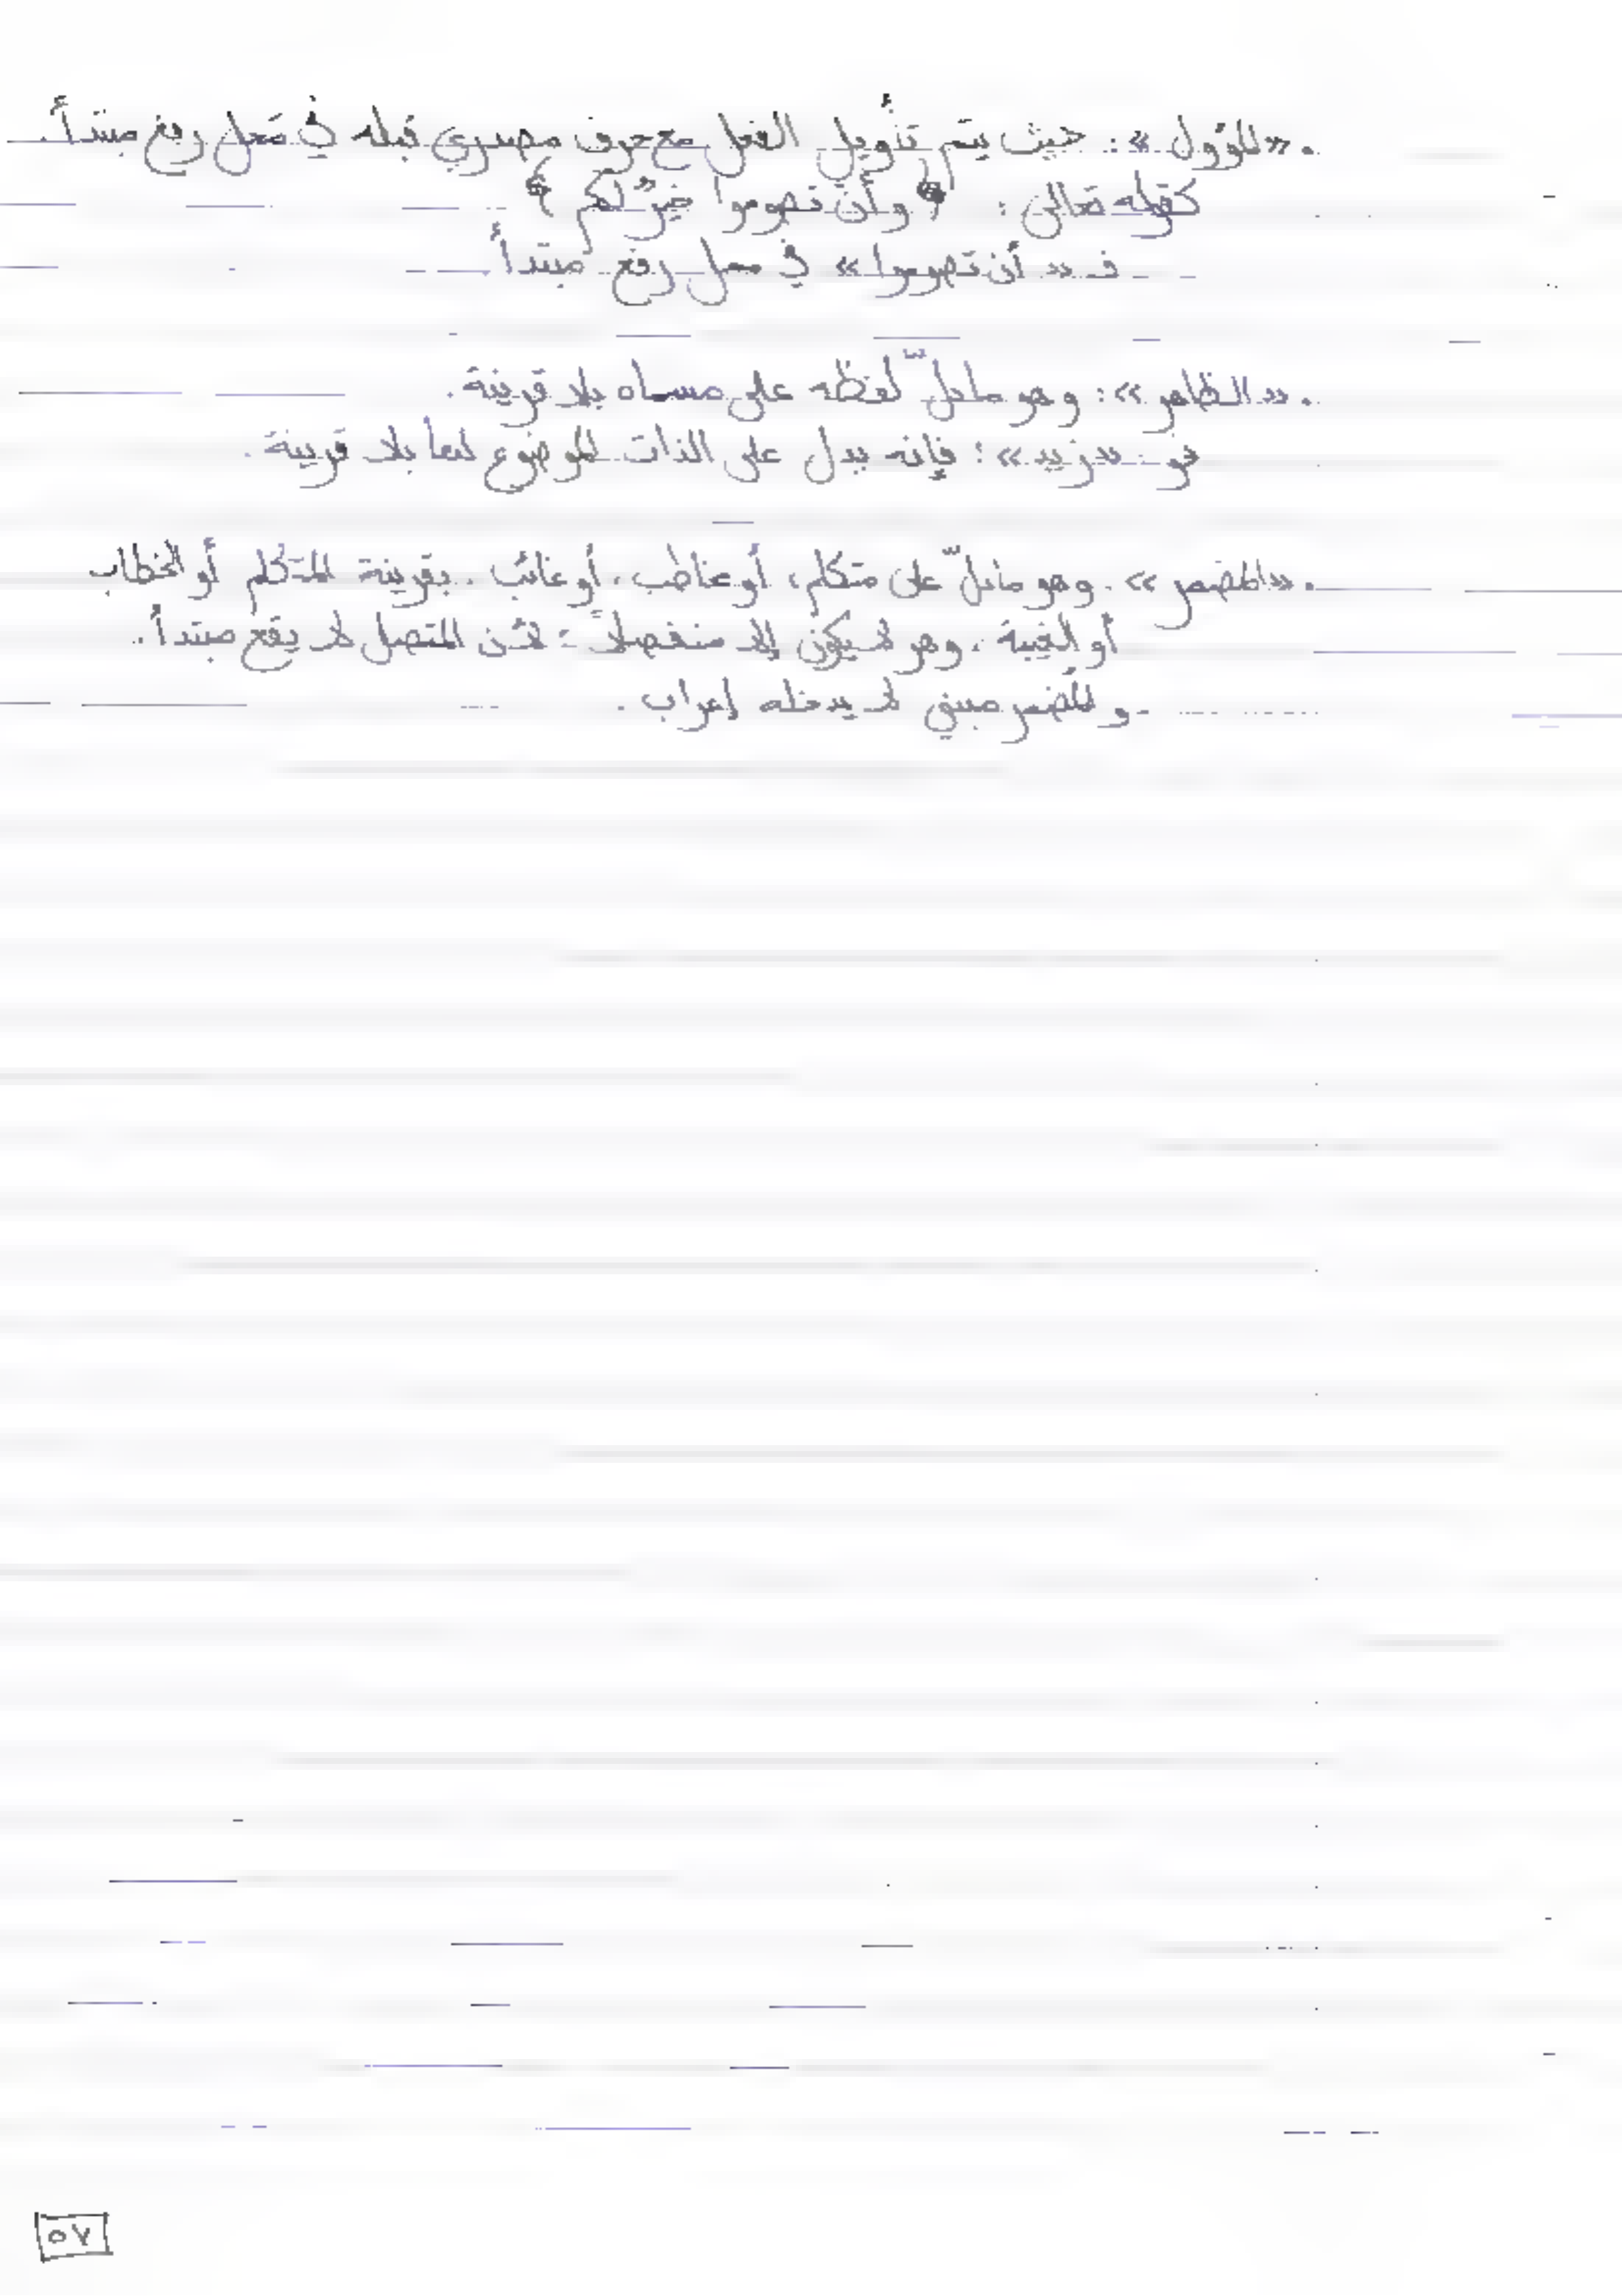 . «المؤول» : حيث يتم تأويل الفعل مع حرف مصدري قبله في محل رفع مبتدأ.
كقوله تعالى : ﴿ وأن تصوموا خيرٌ لكم ﴾
فـ « أن تصوموا » في محل رفع مبتدأ.
. «الظاهر» : وهو ما دلّ لفظه على مسماه بلا قرينة.
نحو «زيد» ؛ فإنه يدل على الذات الموضوع لها بلا قرينة.
. «المضمر» . وهو ما دلّ على متكلم، أو مخاطب، أو غائب . بقرينة المتكلم أو الخطاب
أو الغيبة . وهو لا يكون إلا منفصلاً ؛ لأن المتصل لا يقع مبتدأ.
- والمضمر مبني لا يدخله إعراب.
٥٧